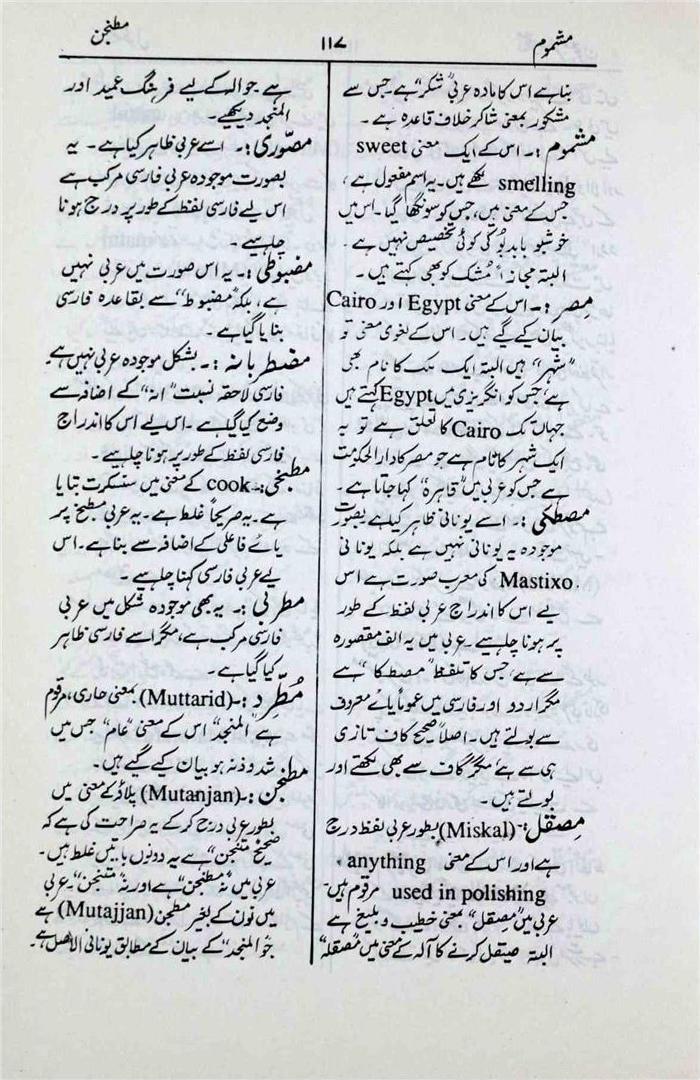 مشموم
۱۱۷
مطنجن
بنا ہے اس کا مادہ عربی "شکر" ہے۔ جس سے
مشکور بمعنی شاکر خلاف قاعدہ ہے۔
مشموم :۔ اس کے ایک معنی sweet
smelling لکھے ہیں۔ یہ اسم مفعول ہے،
جس کے معنی ہیں، جس کو سونگھا گیا۔ اس میں
خوشبو یا بدبو کی کوئی تخصیص نہیں ہے۔
البتہ مجازاً مُشک کو بھی کہتے ہیں۔
مصر :۔ اس کے معنی Egypt اور Cairo
بیان کیے گیے ہیں۔ اس کے لغوی معنی تو
"شہر" ہیں البتہ ایک ملک کا نام بھی
ہے، جس کو انگریزی میں Egypt کہتے ہیں
جہاں تک Cairo کا تعلق ہے تو یہ
ایک شہر کا نام ہے جو مصر کا دارالحکومت
ہے جس کو عربی میں "قاہرۃ" کہا جاتا ہے۔
مصطکی :۔ اسے یونانی ظاہر کیا ہے بصورت
موجودہ یہ یونانی نہیں ہے بلکہ یونانی
Mastixo. کی معرب صورت ہے اس
لیے اس کا اندراج عربی لفظ کے طور
پر ہونا چاہیے۔ عربی میں یہ الف مقصورہ
سے ہے، جس کا تلفظ "مصطکا" ہے
مگر اردو اور فارسی میں عموماً یائے معروف
سے بولتے ہیں۔ اصلاً صحیح کاف تازی
ہی سے ہے، مگر گاف سے بھی لکھتے اور
بولتے ہیں۔
مِصقل:۔ (Miskal) بطور عربی لفظ درج
ہے اور اس کے معنی anything
used in polishing مرقوم ہیں۔
عربی میں "مِصقل" بمعنی خطیب و بلیغ ہے
البتہ صیقل کرنے کا آلہ کے معنی میں "مصقلہ"
ہے۔ حوالہ کے لیے فرہنگ عمید اور
المنجد دیکھیے۔
مصوّری :۔ اسے عربی ظاہر کیا ہے۔ یہ
بصورت موجودہ عربی فارسی مرکب ہے
اس لیے فارسی لفظ کے طور پر درج ہونا
چاہیے۔
مضبوطی :۔ یہ اس صورت میں عربی نہیں
ہے، بلکہ "مضبوط" سے بقاعدہ فارسی
بنایا گیا ہے۔
مضطربانہ :۔ بشکل موجودہ عربی نہیں ہے۔
فارسی لاحقہ نسبت "انہ" کے اضافہ سے
وضع کیا گیا ہے۔ اس لیے اس کا اندراج
فارسی لفظ کے طور پر ہونا چاہیے۔
مطبخی :۔ cook کے معنی میں سنسکرت بتایا
ہے۔ یہ صریحاً غلط ہے۔ یہ عربی مطبخ پر
یائے فاعلی کے اضافہ سے بنا ہے۔ اس
لیے عربی فارسی کہنا چاہیے۔
مطربی :۔ یہ بھی موجودہ شکل میں عربی
فارسی مرکب ہے، مگر اسے فارسی ظاہر
کیا گیا ہے۔
مُطّرِد :۔ (Muttarid) بمعنی جاری، مرقوم
ہے "المنجد" اس کے معنی "عام" جس میں
شذوذ نہ ہو بیان کیے گیے ہیں۔
مطنجن :۔ (Mutanjan) پلاؤ کے معنی میں
بطور عربی درج کر کے یہ صراحت کی ہے کہ
صحیح "متنجن" ہے یہ دونوں باتیں غلط ہیں۔
عربی میں نہ "مطنجن" ہے اور نہ "متنجن"۔ عربی
میں نون کے بغیر مطجن (Mutajjan) ہے
جو "المنجد" کے بیان کے مطابق یونانی الاصل ہے۔